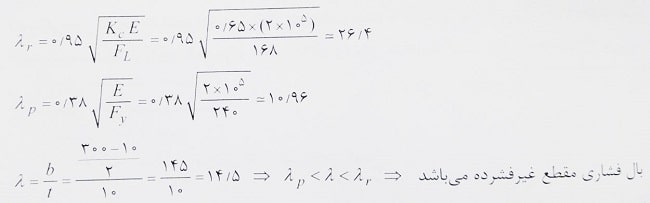 λr = ۰/۹۵ √(Kc E / FL) = ۰/۹۵ √(۰/۶۵ × (۲ × ۱۰^۵) / ۱۶۸) ≃ ۲۶/۴
λp = ۰/۳۸ √(E / Fy) = ۰/۳۸ √(۲ × ۱۰^۵ / ۲۴۰) ≃ ۱۰/۹۶
λ = b/t = ((۳۰۰ − ۱۰)/۲)/۱۰ = ۱۴۵/۱۰ = ۱۴/۵ ⇒ λp < λ < λr ⇒ بال فشاری مقطع غیرفشرده می‌باشد